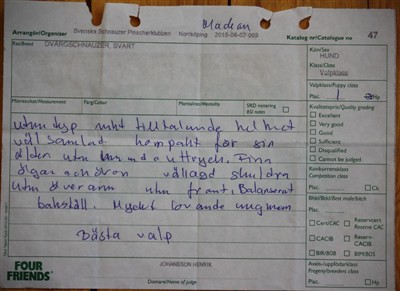 Madican
Arrangör/Organizer Svenska Schnauzer Pinscherklubben Norrköping 2015-06-07-009 Katalog nr/Catalogue nr 47
Ras/Breed DVÄRGSCHNAUZER, SVART
Kön/Sex
HUND
Klass/Class
Valpklass
Valpklass/Puppy class
Plac. 1 Hp
Mankhöjd/Measurement Färg/Colour Mentalitet/Mentality SRD notering BSI notes
Kvalitetspris/Quality grading
Excellent
Very good
Good
Sufficient
Disqualified
Cannot be judged
Konkurrensklass
Competition class
Plac. Ck
Bästa valp
Cert/CAC Reservcert Reserve CAC
CACIB Reserv-CACIB
BIR/BOB BIM/BOS
Avels-/uppfödarklass
Progeny/breeders class
Plac. Hp
FOUR FRIENDS
JOHANSSON HENRIK
Domare/Name of judge
utm typ mkt tilltalande helhet
väl samlad kompakt för sin
ålder utm huvud o uttryck. Fina
ögon o öron välлagd skuldra
utm överarm utm front. Balanserat
bakställ. Mycket lovande ung man